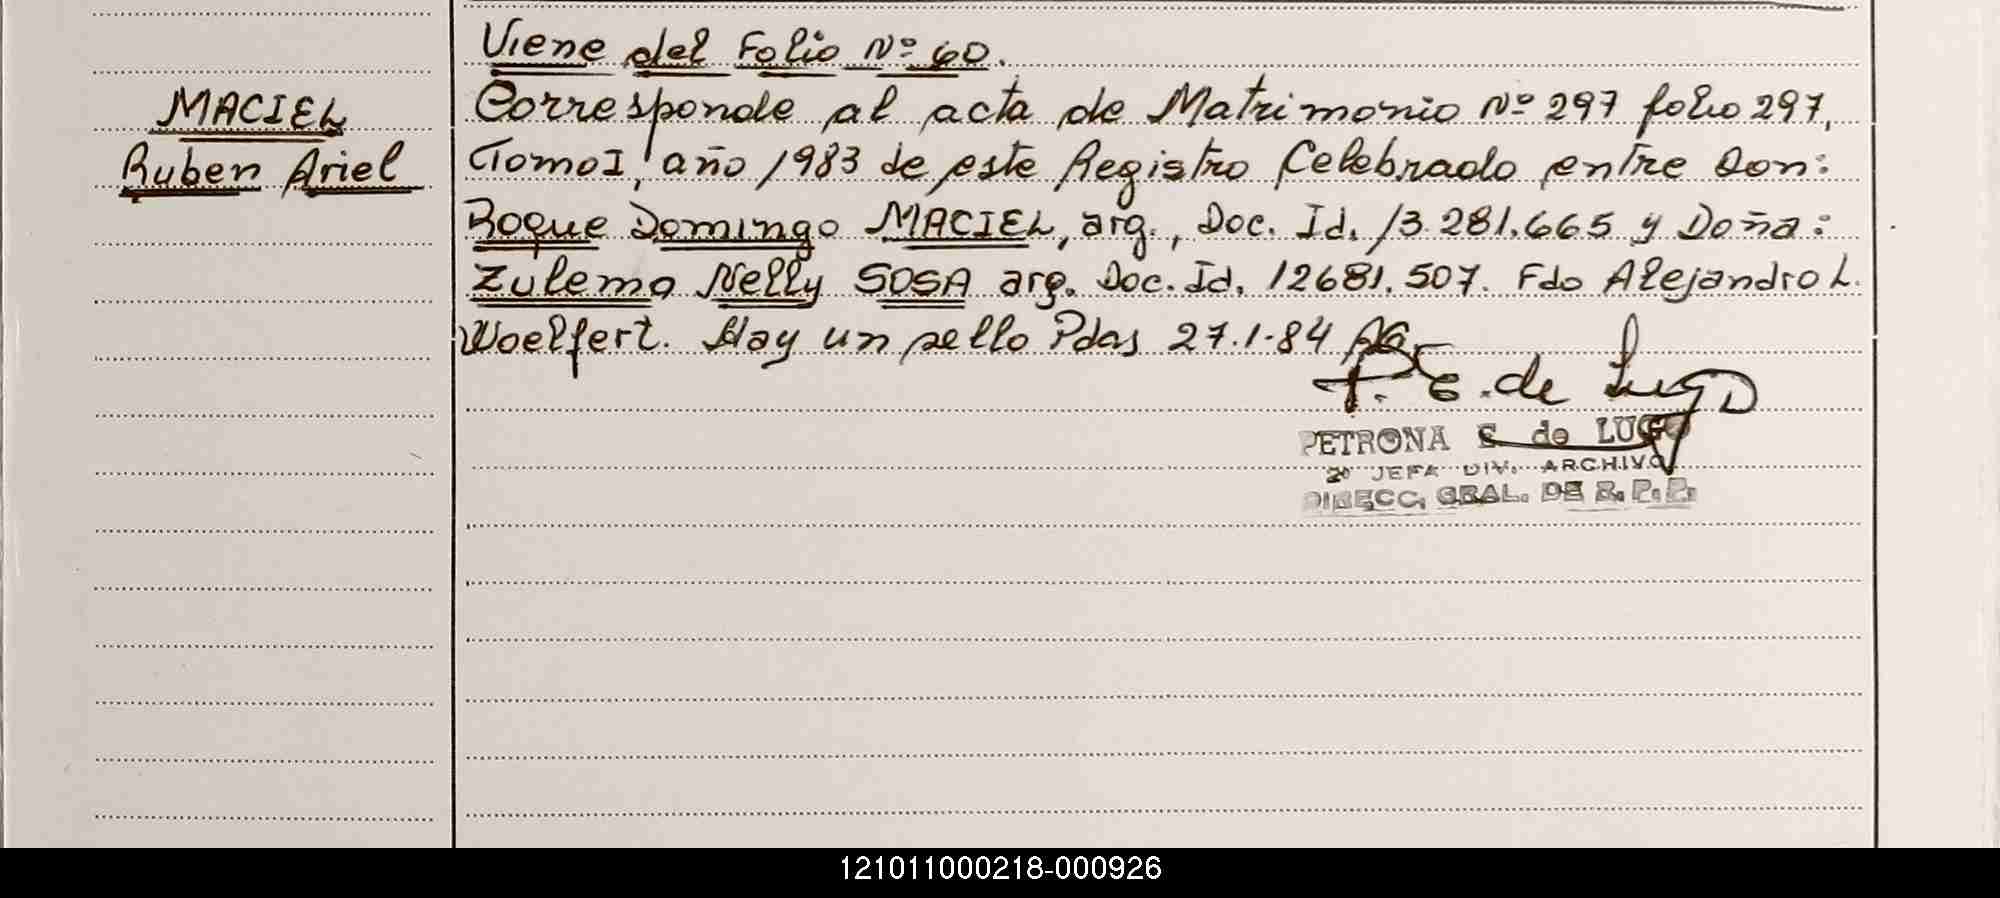 Viene del Folio Nº 60.
MACIEL
Ruben Ariel
Corresponde al acta de Matrimonio Nº 297 folio 297,
Tomo I, año 1983 de este Registro Celebrado entre Don:
Roque Domingo MACIEL, arg., Doc. Id. 13.281.665 y Doña:
Zulema Nelly SOSA arg. Doc. Id. 12681.507. Fdo Alejandro L.
Woelfert. Hay un sello Pdas 27.1-84
P. E. de Lugo
PETRONA E. de LUGO
2º JEFA DIV. ARCHIVO
DIRECC. GRAL. DE R. P. P.
121011000218-000926